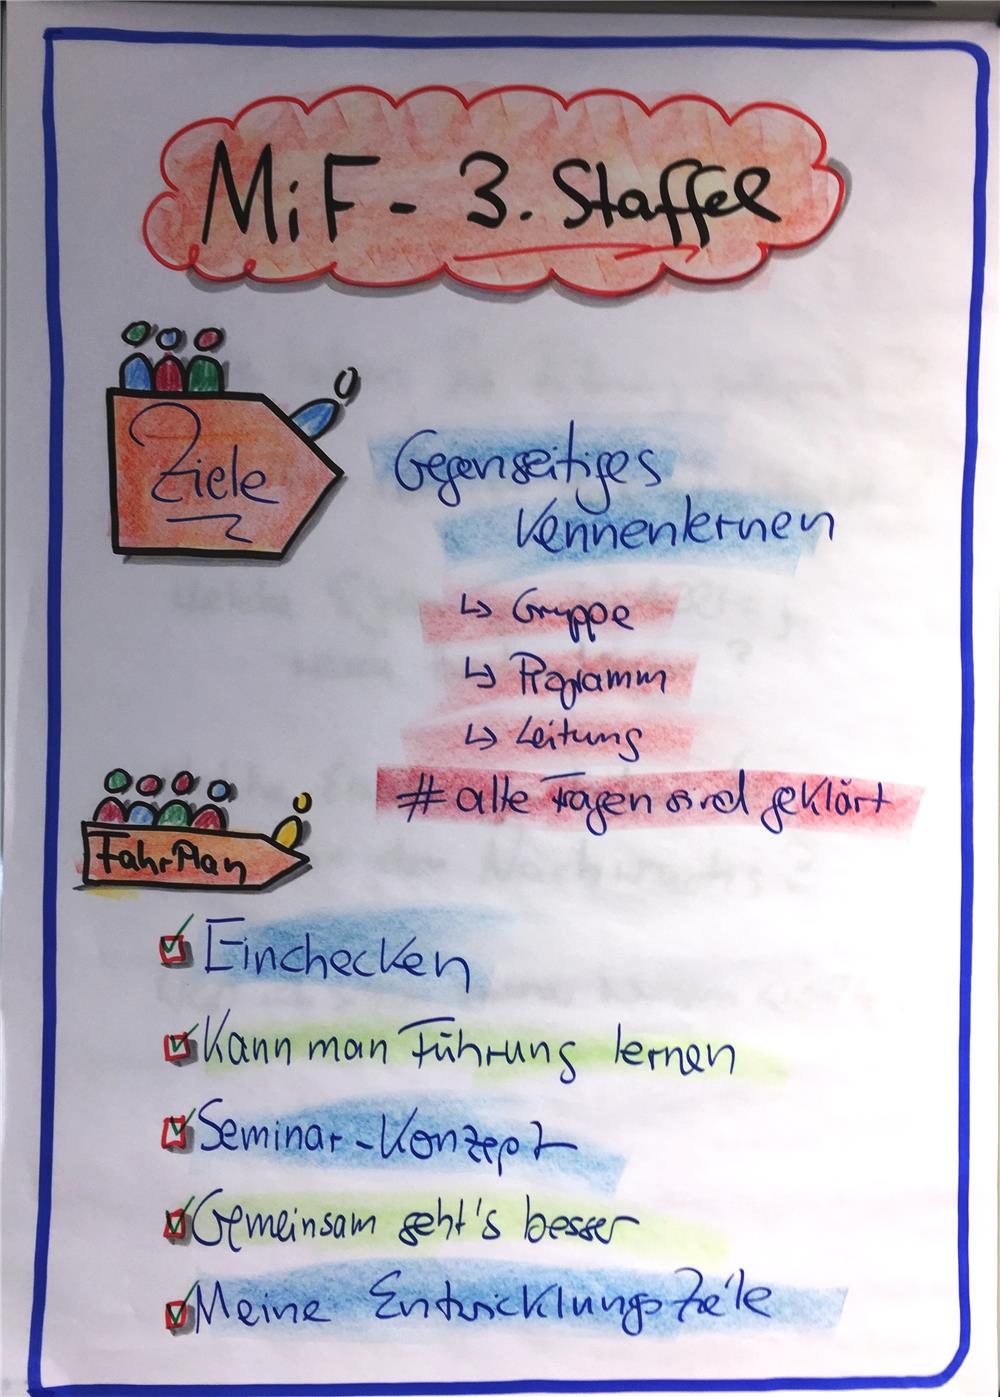 MiF - 3. Staffel
Ziele
Gegenseitiges
Kennenlernen
↳ Gruppe
↳ Programm
↳ Leitung
# alle Fragen sind geklärt
FahrPlan
Einchecken
Kann man Führung lernen
Seminar-Konzept
Gemeinsam geht's besser
Meine Entwicklungsziele